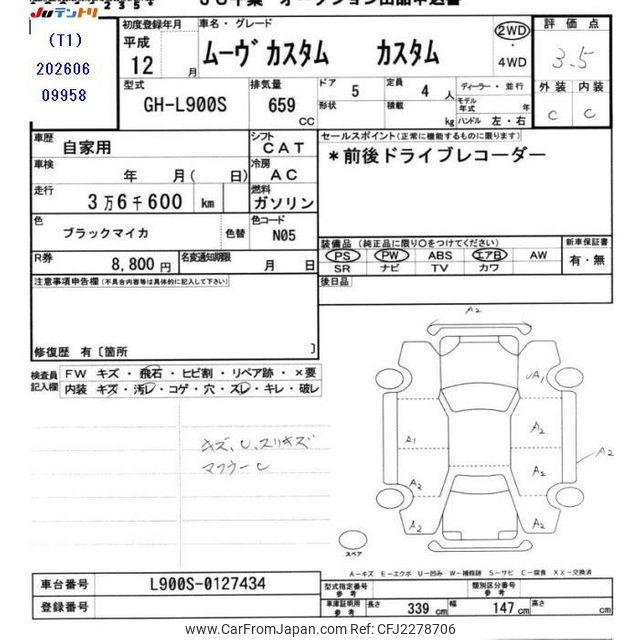 JUテントリ
(T1)
202606
09958
初度登録年月
平成
12 月
車名・グレード
ムーヴ カスタム カスタム
2WD
4WD
評価点
3.5
外装 内装
C C
型式
GH-L900S
排気量
659 CC
ドア 5
形状
定員 4 人
積載 kg
ディーラー・並行
モデル年式 年
ハンドル 左・右
車歴
自家用
シフト
CAT
セールスポイント(正常に機能するものに限ります)
*前後ドライブレコーダー
車検
年 月( 日)
冷房
AC
走行
3万6千600 km
燃料
ガソリン
色
ブラックマイカ
色替
色コード
N05
装備品(純正品に限り○をつけてください)
PS PW ABS エアB AW
SR ナビ TV カワ
新車保証書
有・無
R券
8,800円
名変通知期限
月 日
後日品
注意事項申告欄(不具合内容等は具体的に記入して下さい)
修復歴 有〔箇所 〕
検査員記入欄
FW キズ・飛石・ヒビ割・リペア跡・×要
内装 キズ・汚レ・コゲ・穴・スレ・キレ・破レ
キズ、U、スリキズ
マフラーC
A2
A1
A1
A2
A2
A2
A2
A2
スペア
A-キズ E-エクボ U-凹み W-補修跡 S-サビ C-腐食 XX-交換済
車台番号
L900S-0127434
登録番号
型式指定番号 参考
類別区分番号 参考
車庫証明用 参考
長さ 339 cm
幅 147 cm
高さ cm
www.CarFromJapan.com - CFJ2278706